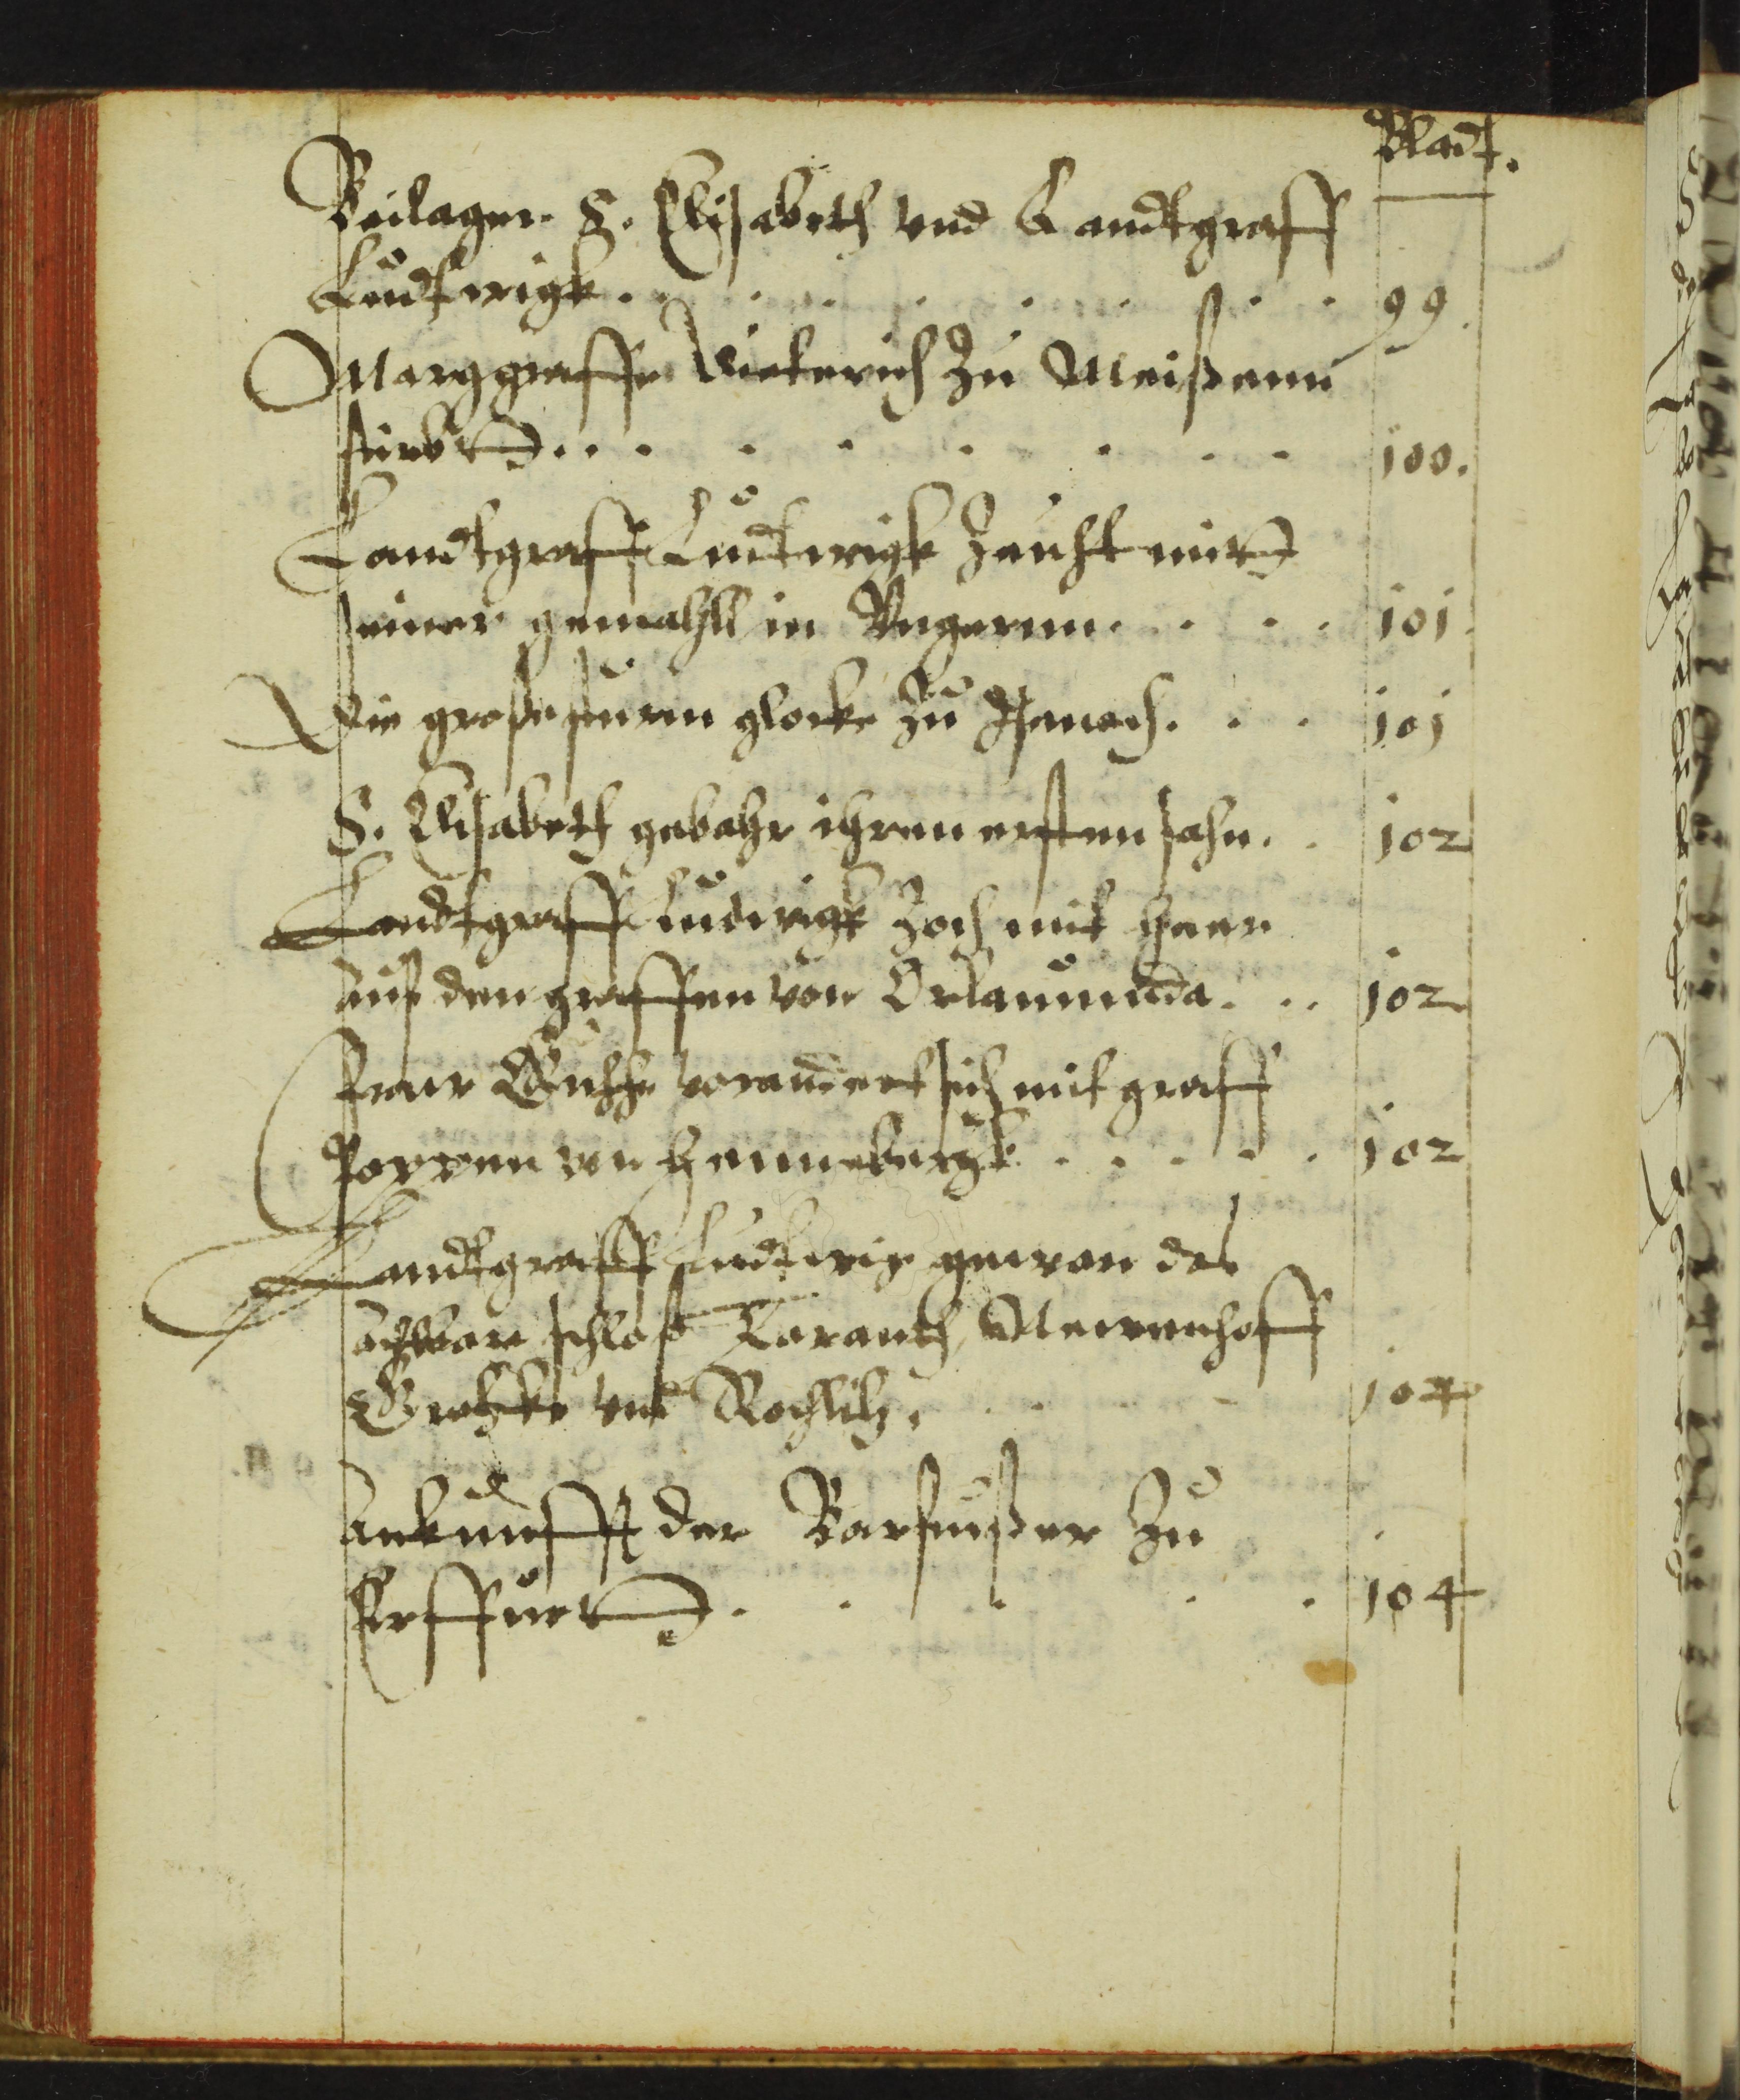 Bladt.
Beilager S. Elisabeth vnd Landtgraff
Ludtwigk. . . . . . . . . 99.
Marggraffe Dieterich zu Meißenn
stirbtt . . . . . . . . . 100.
Landtgraff Ludtwigk zeucht mitt
seiner gemahll in Vngernn. . . . 101.
Die große sturm glocke zu Isenach. . . 101
S. Elisabeth gebahr ihren ersten sohn. . 102
Landtgraff Ludwigk zoch mit heer
auf den graffen von Orlamunda. . . 102
Fraw Guthe vorandert sich mit graff
Poppen von Hennebergk. . . . . 102
Landtgraff Ludtwig gewan das
schloß Taranth,
vnd Rochlitz. . . . 104
Ankunfft der Barfußer zu
Erffurtt. . . . . . 104